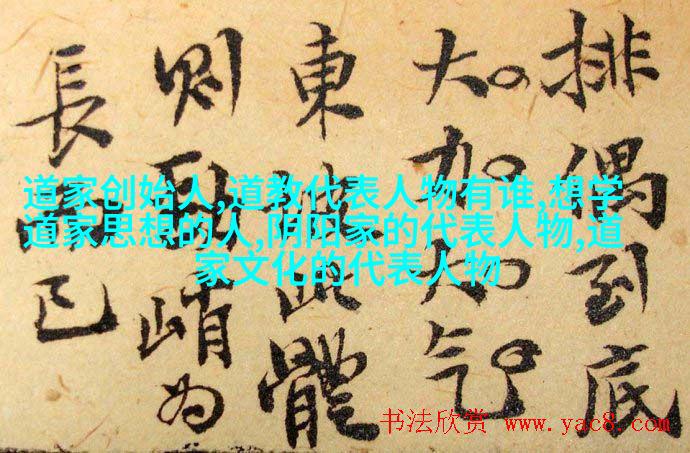 排偶到底
大气
東此體
则峭为
長已
道家创始人,道教代表人物有谁,想学
道家思想的人,阴阳家的代表人物,道
家文化的代表人物
书法欣赏 www.yac8.com